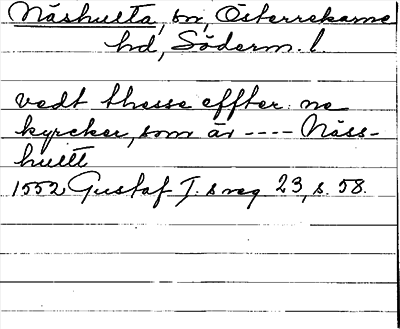 Näshulta, sn, Österrekarne
hd, Söderm. l.
vedt thesse effter: ne
kyrcker, som är ---- Näss-
hultt
1552 Gustaf I:s reg 23, s. 58.